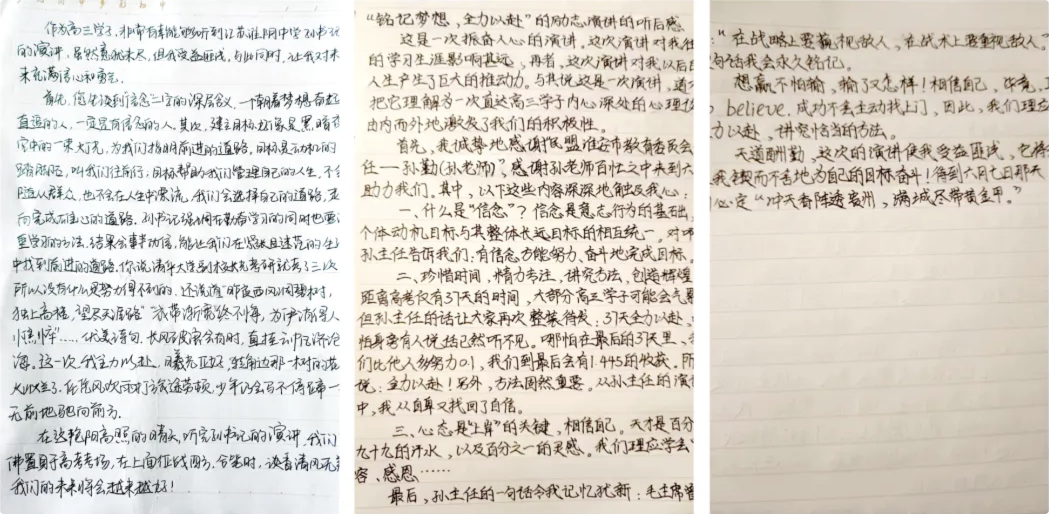 作为高三学子，非常有幸能够听到江苏淮阴中学孙书记
的演讲，虽然意犹未尽，但我受益匪浅，与此同时，让我对未
来充满信心和勇气。
首先，您先谈到信念二字的深层含义，一朝着梦想奋起
直追的人，一定是有信念的人。其次，建立目标，好像是黑暗夜
空中的一束灯光，为我们指明前进的道路。目标是动机的
我们往前行；目标帮助我们管理自己的人生，不会
随人群众，也不会在人生中漂流，我们会选择自己的道路，走
向完成在我心的道路。孙书记强调在勤奋学习的同时也要注
重学习的方法，结果会事半功倍，能让我们在紧张且迷茫的生活
中找到前进的道路。你说清华大学副校长光考研就考了三次
所以没有什么是努力得不到的。还说道“昨夜西风凋碧树，
独上高楼，望尽天涯路”“衣带渐宽终不悔，为伊消得人
憔悴”……优美诗句。长风破浪会有时，直挂云帆济沧
海。这一次，我全力以赴，曦光正好，转角边那一树的花
火灿烂了，任凭风吹雨打旅途劳顿，少年仍会写不停蹄一往
无前地驰向前方。
在这艳阳高照的晴天，听完孙书记的演讲，我们
佛置身于高考考场，在上面征战四方，合笔时，谈香清风无
我们的未来将会越来越好！
“铭记梦想，全力以赴”的励志演讲的听后感
这是一次振奋人心的演讲。这次演讲对我往
的学习生涯影响甚远，再者，这次演讲对我以后的
人生产生了巨大的推动力。与其说是一次演讲，道不
把它理解为一次直达高三学子内心深处的心理
由内而外地激发了我们的积极性。
首先，我诚挚地感谢民盟淮安市教育委员会
任——孙勤（孙老师）。感谢孙老师百忙之中来到六
助力我们。其中，以下这些内容深深地触及我心：
一、什么是“信念”？信念是意志行为的基础，
个体动机目标与其整体长远目标的相互统一。对
孙主任告诉我们：有信念方能努力、奋斗地完成目标。
二、珍惜时间，精力专注，讲究方法，创造辉煌
距离高考仅有37天的时间，大部分高三学子可能会气
但孙主任的话让大家再次整装待发：37天全力以赴，
怕身旁有人说话已然听不见。哪怕在最后的37天里、
们比他人多努力0.1，我们到最后会有1.445的收获。所
说：全力以赴！另外，方法固然重要。从孙主任的演讲
中，我从自卑又找回了自信。
三、心态是“上岸”的关键，相信自己。天才是百分
九十九的汗水，以及百分之一的灵感。我们理应学会“
容、感恩……
最后，孙主任的一句话令我记忆犹新：毛主席曾
：“在战略上要藐视敌人，在战术上要重视敌人。”
句话我会永久铭记。
想赢不怕输，输了又怎样！相信自己，毕竟，I
believe. 成功不会主动找上门，因此，我们理应
力以赴，讲究恰当的方法。
天道酬勤，这次的演讲使我受益匪浅，它将
我锲而不舍地为自己的目标奋斗！待到六月七日那天
心定“冲天香阵透贵州，满城尽带黄金甲。”